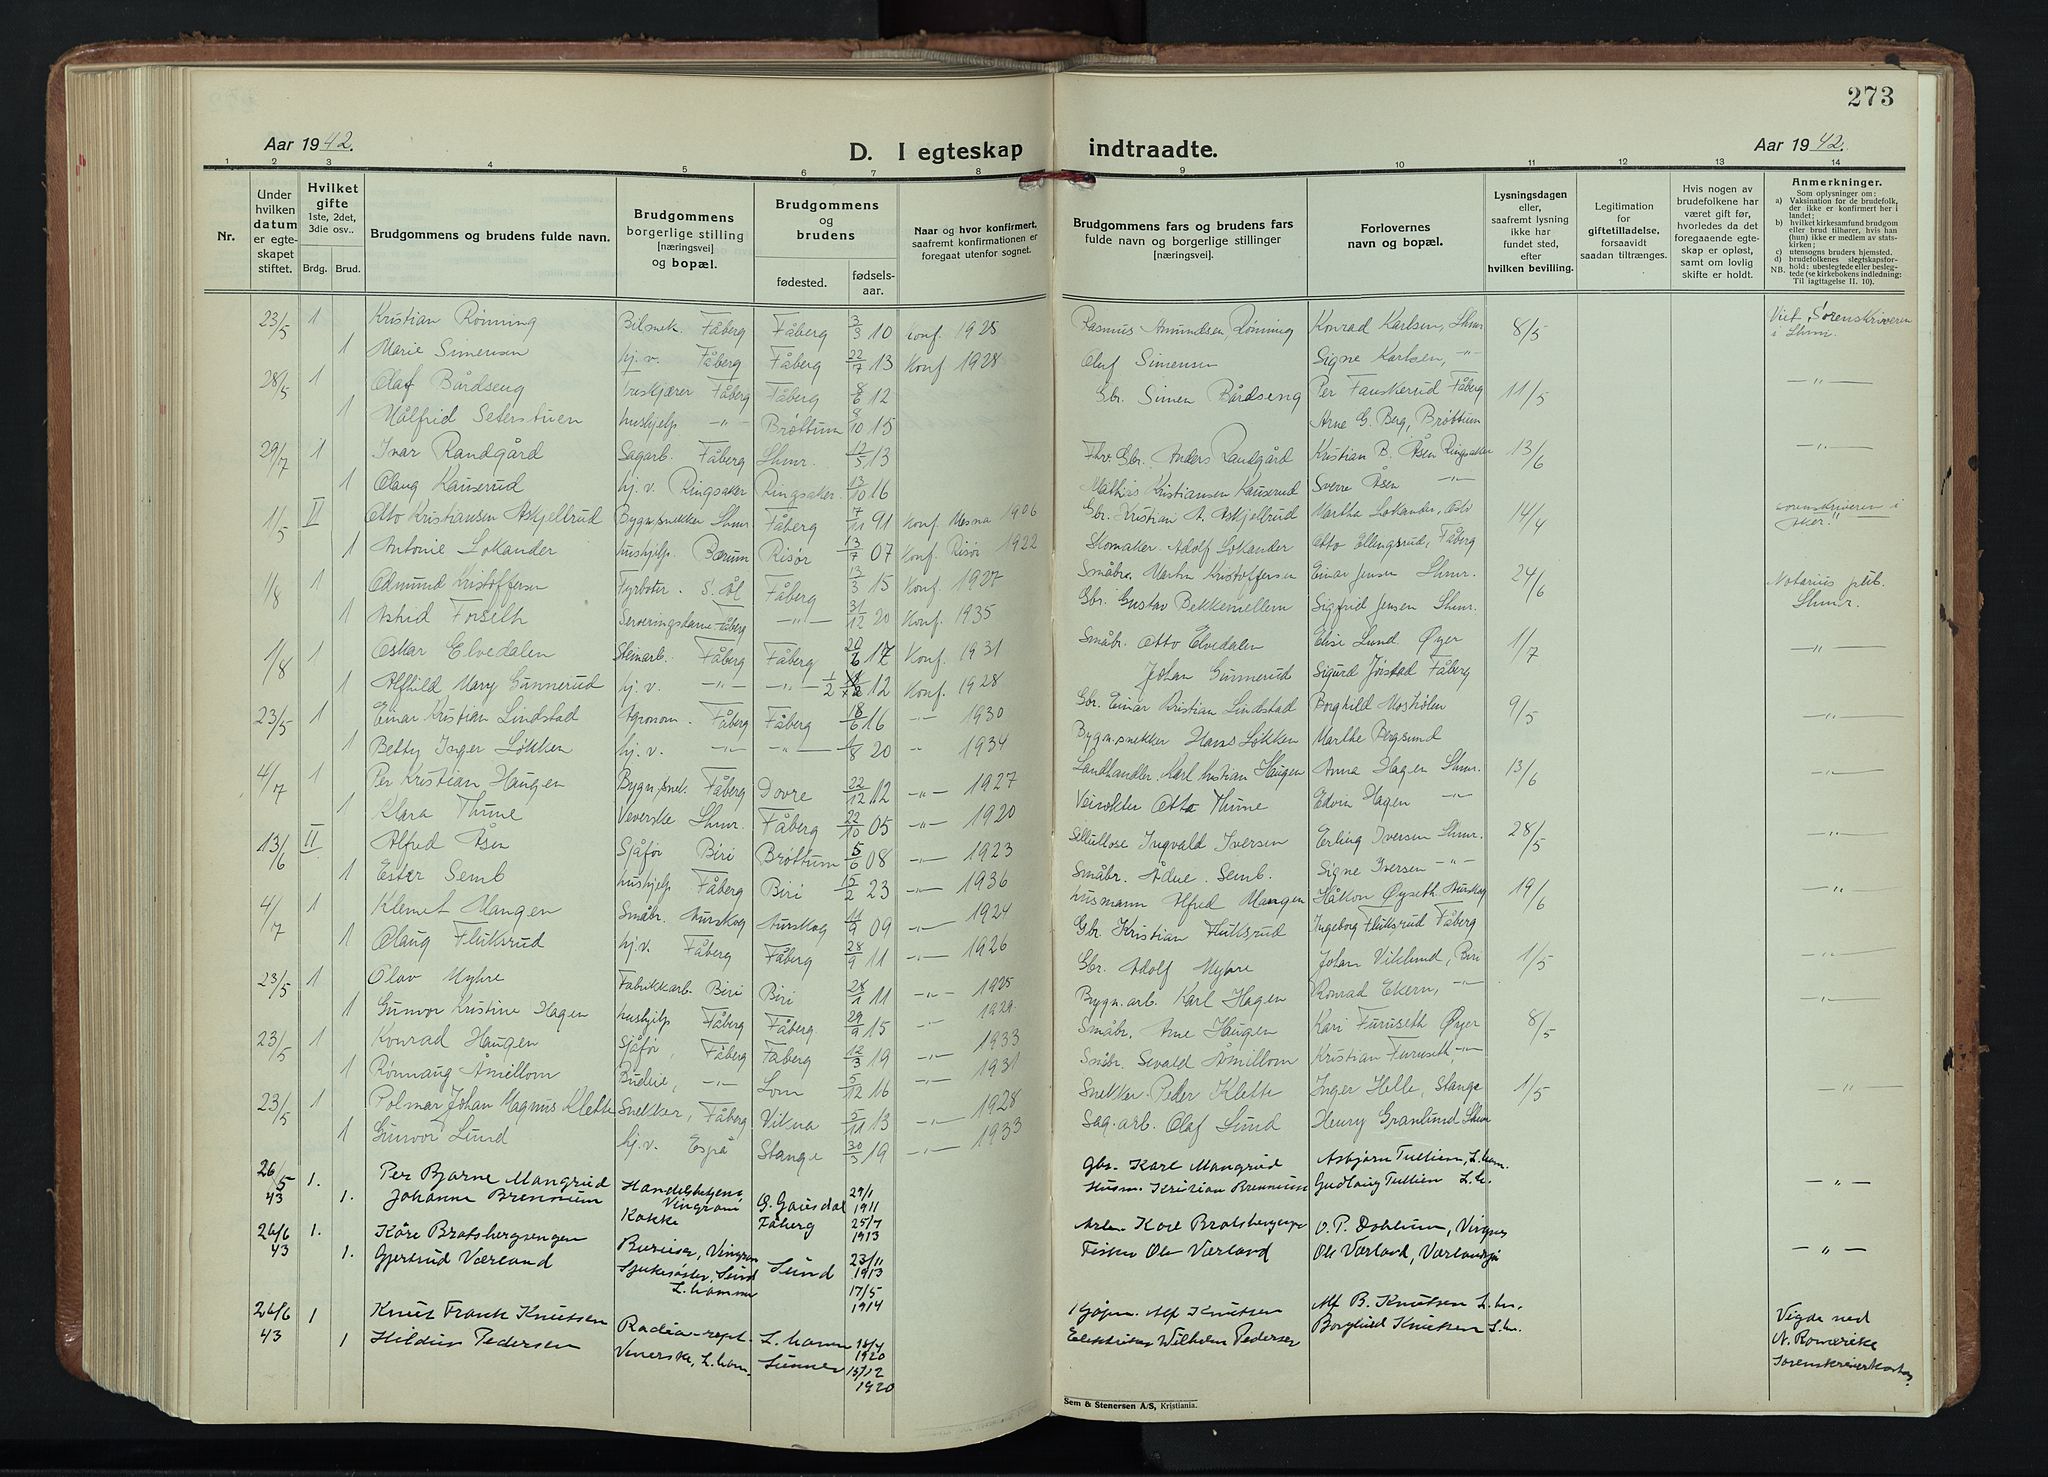 273
Aar 1942.
D. I egteskap indtraadte.
Aar 1942.
1 2 3 4 5 6 7 8 9 10 11 12 13 14
Nr.
Under hvilken datum er egteskapet stiftet.
Hvilket gifte 1ste, 2det, 3die osv..
Brdg. Brud.
Brudgommens og brudens fulde navn.
Brudgommens borgerlige stilling [næringsvei] og bopæl.
Brudgommens og brudens
fødested.
fødselsaar.
Naar og hvor konfirmert, saafremt konfirmationen er foregaat utenfor sognet.
Brudgommens fars og brudens fars fulde navn og borgerlige stillinger [næringsvei].
Forlovernes navn og bopæl.
Lysningsdagen eller, saafremt lysning ikke har fundet sted, efter hvilken bevilling.
Legitimation for giftetilladelse, forsaavidt saadan tiltrænges.
Hvis nogen av brudefolkene har været gift før, hvorledes da det foregaaende egteskap er opløst, samt om lovlig skifte er holdt.
Anmerkninger.
Som oplysninger om:
a) Vaksination for de brudefolk, der ikke er konfirmert her i landet;
b) hvilket kirkesamfund brudgom eller brud tilhører, hvis han (hun) ikke er medlem av statskirken;
c) utensogns bruders hjemsted.
d) brudefolkenes slegtskapsforhold: ubeslegtede eller beslegtede (se kirkebokens indledning:
NB. Til iagttagelse II. 10).
23/5 1 Kristian Rønning Bilmek. Fåberg Fåberg 3/3 10 conf. 1925 Rasmus Amundsen Rønning Konrad Karlsen, Lhmr 8/5 Viet, Sorenskriveren i Lhmr.
1 Marie Simensen hj. v. Fåberg Fåberg 22/7 13 Konf 1928 Oluf Simensen Signe Karlsen, -"-
28/5 1 Olaf Bårdseng Fåberg Fåberg 8/6 12 Gbr. Simen Bårdseng Per Fauskerud Fåberg 11/5 -"-
1 Målfrid Seterstuen hushjelp -"- Brøttum 8/10 15 Arne G. Berg, Brøttum
29/7 1 Ivar Randgård Sagarb. Fåberg Lhmr. 12/5 13 Fhv. Gbr. Anders Randgård Kristian B. Åsen Ringsaker 13/6 -"-
1 Olaug Kauserud hj. v. Ringsaker Ringsaker 13/10 16 Mathis Kristiansen Kauserud Sverre Åsen -"-
1/5 II Otto Kristiansen Askjeltrud Bygn.snekker Lhmr. Fåberg 7/11 91 Konf. Mesna 1906 Gbr. Kristian A. Askjeltrud Martha Lokander, Oslo 14/4 sorenskriveren i
1 Antonie Lokander hushjelp. Bærum Risør 13/7 07 Konf. Risør 1922 Skomaker. Adolf Lokander Otto Ellingsrud, Fåberg
1/8 1 Edmund Kristoffersen Fyrbøter. S. Ål Fåberg 13/3 15 Konf. 1927 Småbr. Martin Kristoffersen Einar Jensen Lhmr. 24/6 Notarius publ. Lhmr.
1 Astrid Forseth Serveringsdame Fåberg -"- 31/12 20 Konf. 1935 Gbr. Gustav Bekkemellem Sigfrid Jensen Lhmr.
1/8 1 Oskar Elvedalen Steinarb. Fåberg Fåberg 20/6 17 Konf. 1931 Småbr. Otto Elvedalen Elise Lund Øyer 1/7 -"-
1 Alfhild Mary Gunnerud hj. v. -"- -"- 1/2 12 Konf. 1928 Johan Gunnerud Sigurd Jørstad Fåberg
23/5 1 Einar Kristian Lindstad Agronom. Fåberg Fåberg 18/6 16 -"- 1930 Gbr. Einar Kristian Lindstad Borghild Mosholen 9/5 -"-
1 Betty Inger Løkken hj. v. -"- -"- 20 " 1934 Bygn.snekker Hans Løkken Marthe Bergsund
4/7 1 Per Kristian Haugen Bygn.snek. Fåberg Dovre 22/12 12 -"- 1927 Landhandler. Karl Kristian Haugen Anna Hagen Lhmr. 13/6 -"-
1 Klara Thune Veverske Lhmr. Fåberg 22/10 05 -"- 1920 Veivokter Otto Thune Edvin Hagen -"-
13/6 II Alfred Åsen Sjåfør Biri Brøttum 5/6 08 -"- 1923 Sellullose Ingvald Iversen Erling Iversen Lhmr. 28/5 -"-
1 Ester Semb hushjelp Fåberg Biri 15/2 23 -"- 1936 Småbr. Semb. Signe Iversen -"-
4/7 1 Klemet Mangen Småbr. Aurskog Aurskog 11/9 09 -"- 1924 husmann Alfred Mangen Håkon Øyseth Aurskog 19/6 "
1 Olaug Fluksrud hj. v. Fåberg Fåberg 28/9 11 -"- 1926 Gbr. Kristian Fluksrud Ingeborg Fluksrud Fåberg
23/5 1 Olav Myhre Fabrikkarb. Biri Biri 28/1 11 -"- 1925 Gbr. Adolf Myhre Johan Viklund, Biri 1/5 -"-
1 Gunvor Kristine Hagen hushjelp Fåberg Fåberg. 29/9 15 -"- 1929. Bygn. arb. Karl Hagen Konrad Ekern, -"- -"-
23/5 1 Konrad Haugen Sjåfør, Fåberg Fåberg 12/3 19 -"- 1933 Småbr. Arne Haugen Kari Furuseth Øyer 8/5
1 Rønnaug Åmillom Budeie, -"- Lom 5/12 16 -"- 1931 Småbr. Sevald Åmillom Kristian Furuseth, -"-
23/5 1 Polmar Johan Magnus Klette Snekker, Fåberg Vikna 5/11 13 -"- 1928 Snekker. Peder Klette Inger Helle, Stange 1/5 -"-
1 Gunvor Lund hj. v. Espå Stange 30/3 19 -"- 1933 Sag. arb. Olaf Lund Henry Granlund Lhmr
26/5 43 1. Per Bjarne Mangrud Vingrom G. Gausdal 29/1 1911 Gbr. Karl Mangrud Asbjørn Tullien, L.ham. -"-
1. Johanne Brennum Kokke Fåberg 25/7 1913 Husm. Kristian Brennum Gudlaug Tullien L.h.
26/6 43 1. Kåre Bratsbergsengen Vingrom 23/11 1913 Karl Bratsbergengen O. P. Dahlum, Vingrom
1. Gjertrud Værland Sjukesøster, Lund L.hammer Sund 17/5 1914 Fisker Ole Værland Ole Værland, -"-
26/6 43 1 Knut Frank Knutsen Radio-rept. L.hamm 1920 Alf Knutsen Alf B. Knutsen L.hr. Vigde ved N. Romerike Sorenskriverkontor,
1 Hildur Pedersen Veverske, L.ham. Sunner 15/12 1920 Wilhelm Pedersen Borghild Knutsen L.h.
Sem & Stenersen A/S, Kristiania.